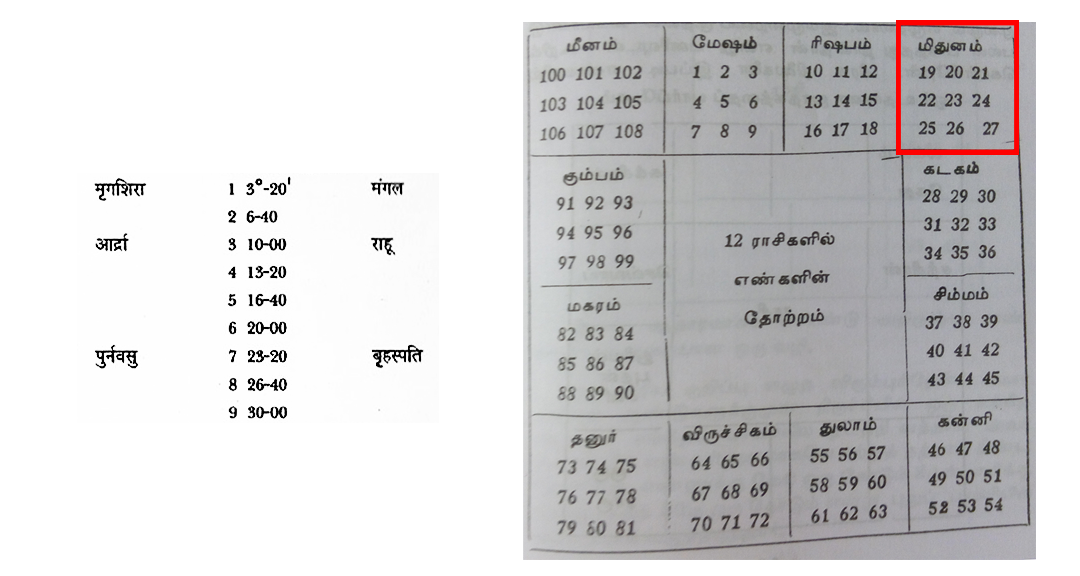 मृगशिरा 1 3°-20' मंगल
2 6-40
आर्द्रा 3 10-00 राहू
4 13-20
5 16-40
6 20-00
पुर्नवसु 7 23-20 बृहस्पति
8 26-40
9 30-00
மீனம் மேஷம் ரிஷபம் மிதுனம்
100 101 102 1 2 3 10 11 12 19 20 21
103 104 105 4 5 6 13 14 15 22 23 24
106 107 108 7 8 9 16 17 18 25 26 27
கும்பம் கடகம்
91 92 93 28 29 30
94 95 96 31 32 33
97 98 99 34 35 36
12 ராசிகளில்
எண்களின்
தோற்றம்
மகரம் சிம்மம்
82 83 84 37 38 39
85 86 87 40 41 42
88 89 90 43 44 45
தனுர் விருச்சிகம் துலாம் கன்னி
73 74 75 64 65 66 55 56 57 46 47 48
76 77 78 67 68 69 58 59 60 49 50 51
79 80 81 70 71 72 61 62 63 52 53 54